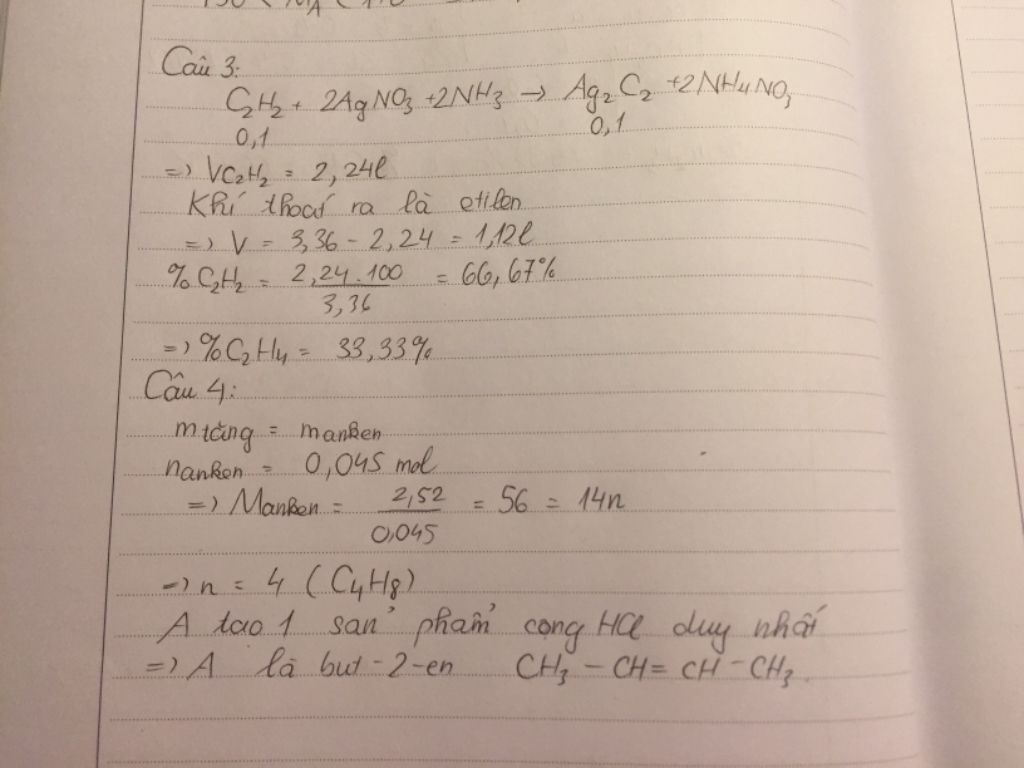 Câu 3:
C₂H₂ + 2AgNO₃ + 2NH₃ → Ag₂C₂ + 2NH₄NO₃
0,1 0,1
=> VC₂H₂ = 2,24l
Khí thoát ra là etilen
=> V = 3,36 - 2,24 = 1,12l
%C₂H₂ = 2,24.100 / 3,36 = 66,67%
=> %C₂H₄ = 33,33%
Câu 4:
mtăng = manken
nanken = 0,045 mol
=> Manken = 2,52 / 0,045 = 56 = 14n
=> n = 4 (C₄H₈)
A tao 1 sản phẩm cọng HCl duy nhất
=> A là but-2-en CH₃ - CH = CH - CH₃.